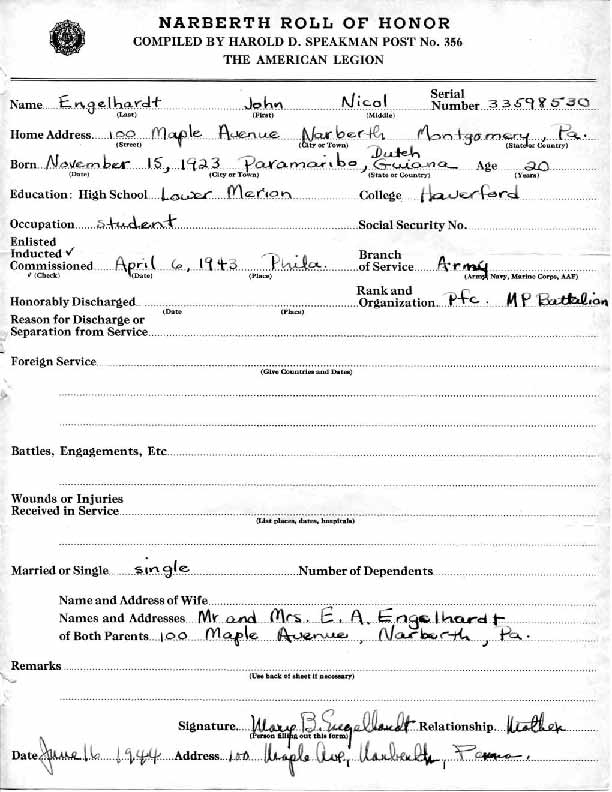 NARBERTH ROLL OF HONOR
COMPILED BY HAROLD D. SPEAKMAN POST No. 356
THE AMERICAN LEGION
Name Engelhardt John Nicol Serial Number 33598530
(Last) (First) (Middle)
Home Address 100 Maple Avenue Narberth Montgomery, Pa.
(Street) (City or Town) (State or Country)
Born November 15, 1923 Paramaribo, Dutch Guiana Age 20
(Date) (City or Town) (State or Country) (Years)
Education: High School Lower Merion College Haverford
Occupation student Social Security No.
Enlisted
Inducted ✓
Commissioned April 6, 1943 Phila. Branch of Service Army
✓(Check) (Date) (Place) (Army, Navy, Marine Corps, AAF)
Honorably Discharged Rank and Organization Pfc. MP Battalion
(Date (Place)
Reason for Discharge or
Separation from Service
Foreign Service
(Give Countries and Dates)
Battles, Engagements, Etc
Wounds or Injuries
Received in Service
(List places, dates, hospitals)
Married or Single single Number of Dependents
Name and Address of Wife
Names and Addresses Mr and Mrs. E. A. Engelhardt
of Both Parents 100 Maple Avenue, Narberth, Pa.
Remarks
(Use back of sheet if necessary)
Signature Mary B. Engelhardt Relationship Mother
(Person filling out this form)
Date June 16 1944 Address 100 Maple Ave, Narberth, Penna.